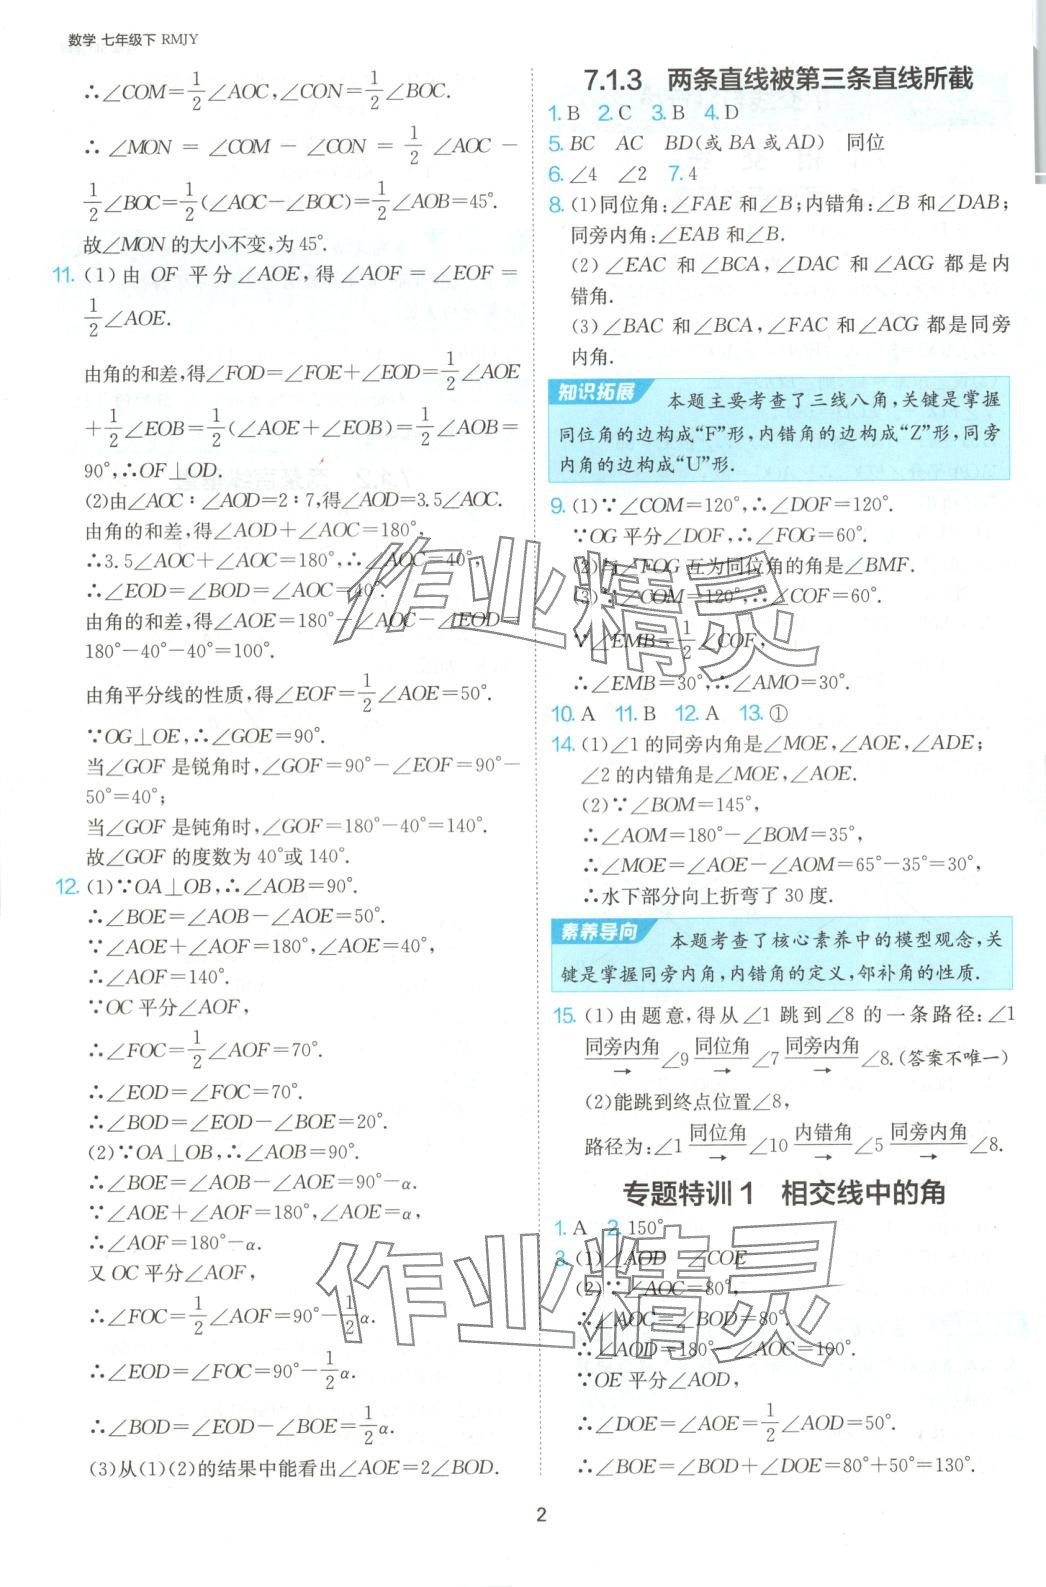 数学 七年级下 RMJY
∴∠COM=1/2∠AOC,∠CON=1/2∠BOC.
∴∠MON=∠COM-∠CON=1/2∠AOC-
1/2∠BOC=1/2(∠AOC-∠BOC)=1/2∠AOB=45°.
故∠MON的大小不变,为45°.
11. (1)由OF平分∠AOE,得∠AOF=∠EOF=
1/2∠AOE.
由角的和差,得∠FOD=∠FOE+∠EOD=1/2∠AOE
+1/2∠EOB=1/2(∠AOE+∠EOB)=1/2∠AOB=
90°,∴OF⊥OD.
(2)由∠AOC∶∠AOD=2∶7,得∠AOD=3.5∠AOC.
由角的和差,得∠AOD+∠AOC=180°,
∴3.5∠AOC+∠AOC=180°,∴∠AOC=40°,
∴∠EOD=∠BOD=∠AOC=40°.
由角的和差,得∠AOE=180°-∠AOC-∠EOD=
180°-40°-40°=100°.
由角平分线的性质,得∠EOF=1/2∠AOE=50°.
∵OG⊥OE,∴∠GOE=90°.
当∠GOF是锐角时,∠GOF=90°-∠EOF=90°-
50°=40°;
当∠GOF是钝角时,∠GOF=180°-40°=140°.
故∠GOF的度数为40°或140°.
12. (1)∵OA⊥OB,∴∠AOB=90°.
∴∠BOE=∠AOB-∠AOE=50°.
∵∠AOE+∠AOF=180°,∠AOE=40°,
∴∠AOF=140°.
∵OC平分∠AOF,
∴∠FOC=1/2∠AOF=70°.
∴∠EOD=∠FOC=70°.
∴∠BOD=∠EOD-∠BOE=20°.
(2)∵OA⊥OB,∴∠AOB=90°.
∴∠BOE=∠AOB-∠AOE=90°-α.
∵∠AOE+∠AOF=180°,∠AOE=α,
∴∠AOF=180°-α.
又OC平分∠AOF,
∴∠FOC=1/2∠AOF=90°-1/2α.
∴∠EOD=∠FOC=90°-1/2α.
∴∠BOD=∠EOD-∠BOE=1/2α.
(3)从(1)(2)的结果中能看出∠AOE=2∠BOD.
7.1.3 两条直线被第三条直线所截
1. B 2. C 3. B 4. D
5. BC AC BD(或BA或AD) 同位
6. ∠4 ∠2 7. 4
8. (1)同位角:∠FAE和∠B;内错角:∠B和∠DAB;
同旁内角:∠EAB和∠B.
(2)∠EAC和∠BCA,∠DAC和∠ACG都是内
错角.
(3)∠BAC和∠BCA,∠FAC和∠ACG都是同旁
内角.
知识拓展 本题主要考查了三线八角,关键是掌握
同位角的边构成“F”形,内错角的边构成“Z”形,同旁
内角的边构成“U”形.
9. (1)∵∠COM=120°,∴∠DOF=120°.
∵OG平分∠DOF,∴∠FOG=60°.
(2)与∠FOG互为同位角的角是∠BMF.
(3)∵∠COM=120°,∴∠COF=60°.
∵∠EMB=1/2∠COF,
∴∠EMB=30°,∴∠AMO=30°.
10. A 11. B 12. A 13. ①
14. (1)∠1的同旁内角是∠MOE,∠AOE,∠ADE;
∠2的内错角是∠MOE,∠AOE.
(2)∵∠BOM=145°,
∴∠AOM=180°-∠BOM=35°,
∴∠MOE=∠AOE-∠AOM=65°-35°=30°,
∴水下部分向上折弯了30度.
素养导向 本题考查了核心素养中的模型观念,关
键是掌握同旁内角,内错角的定义,邻补角的性质.
15. (1)由题意,得从∠1跳到∠8的一条路径:∠1
同旁内角→∠9 同位角→∠7 同旁内角→∠8.(答案不唯一)
(2)能跳到终点位置∠8,
路径为:∠1 同位角→∠10 内错角→∠5 同旁内角→∠8.
专题特训1 相交线中的角
1. A 2. 150°
3. (1)∠AOD ∠COE
(2)∵∠AOC=80°,
∴∠AOC=∠BOD=80°.
∴∠AOD=180°-∠AOC=100°.
∵OE平分∠AOD,
∴∠DOE=∠AOE=1/2∠AOD=50°.
∴∠BOE=∠BOD+∠DOE=80°+50°=130°.
2
作业精灵
作业精灵